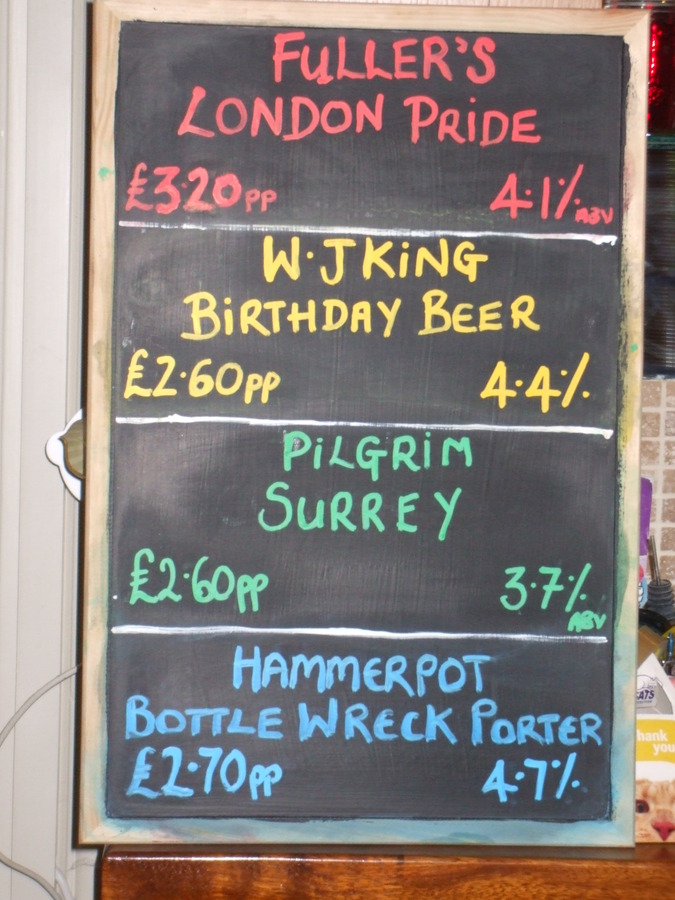 FULLER'S
LONDON PRiDE
£3·20pp 4·1% ABV
W·J KiNG
BiRTHDAY BEER
£2·60pp 4·4%
PiLGRiM
SURREY
£2·60pp 3·7% ABV
HAMMERPOT
BOTTLE WRECK PORTER
£2·70pp 4·7%
CATS
hank
you